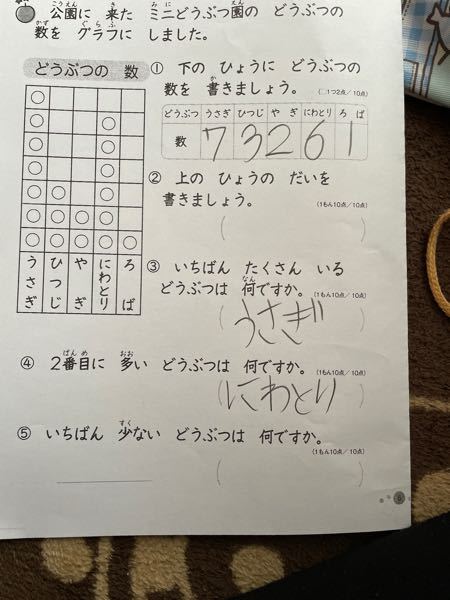 公園に 来た ミニどうぶつ園の どうぶつの
数を グラフに しました。
どうぶつの 数
うさぎ ひつじ やぎ にわとり ろば
① 下の ひょうに どうぶつの
数を 書きましょう。
(□1つ2点/10点)
どうぶつ うさぎ ひつじ やぎ にわとり ろば
数 7 3 2 6 1
② 上の ひょうの だいを
書きましょう。
(1もん10点/10点)
( )
③ いちばん たくさん いる
どうぶつは 何ですか。
(1もん10点/10点)
(うさぎ)
④ 2番目に 多い どうぶつは 何ですか。
(1もん10点/10点)
(にわとり)
⑤ いちばん 少ない どうぶつは 何ですか。
(1もん10点/10点)
( )
6